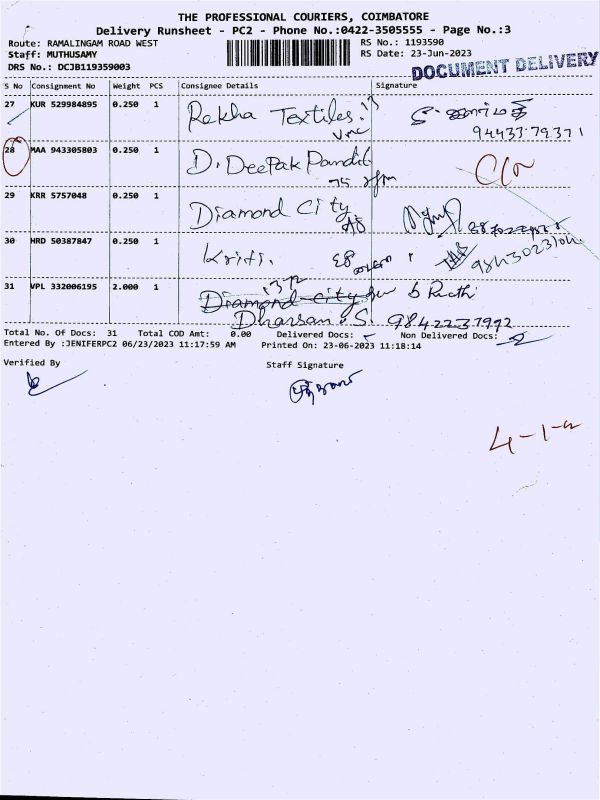 THE PROFESSIONAL COURIERS, COIMBATORE
Delivery Runsheet - PC2 - Phone No.:0422-3505555 - Page No.:3
Route: RAMALINGAM ROAD WEST
RS No.: 1193590
Staff: MUTHUSAMY
RS Date: 23-Jun-2023
DRS No.: DCJB119359003
DOCUMENT DELIVERY
S No Consignment No Weight PCS Consignee Details Signature
27 KUR 529984895 0.250 1 Rekha Textiles.
94433 79371
28 MAA 943305803 0.250 1 D. Deepak Pandit
75
29 KRR 5757048 0.250 1 Diamond City
30 HRD 50387847 0.250 1 Kriti.
31 VPL 332006195 2.000 1 Diamond city
Dharsan. S. 9842237992
Total No. Of Docs: 31 Total COD Amt: 0.00 Delivered Docs: Non Delivered Docs:
Entered By :JENIFERPC2 06/23/2023 11:17:59 AM Printed On: 23-06-2023 11:18:14
Verified By Staff Signature